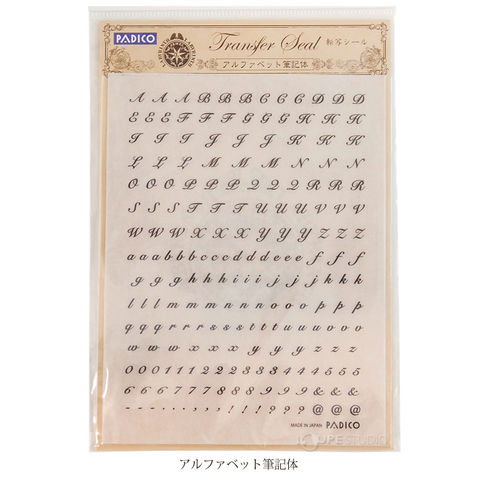 PADICO
Transfer Seal 転写シール
アルファベット筆記体
A A A B B B C C C D D D
E E E F F F G G G H H H
I I I J J J K K K
L L L M M M N N N
O O O P P P Q Q Q R R R
S S S T T T U U U V V V
W W W X X X Y Y Y Z Z Z
a a a b b b c c c d d d e e e f f f
g g g h h h i i i j j j k k k
l l l m m m n n n o o o p p p
q q q r r r s s s t t t u u u v v v
w w w x x x y y y z z z
0 0 0 1 1 1 2 2 2 3 3 3 4 4 4 5 5 5
6 6 6 7 7 7 8 8 8 9 9 9 & & &
- - - · · · , , , ! ! ! ? ? ? @ @ @
MADE IN JAPAN PADICO
アルファベット筆記体